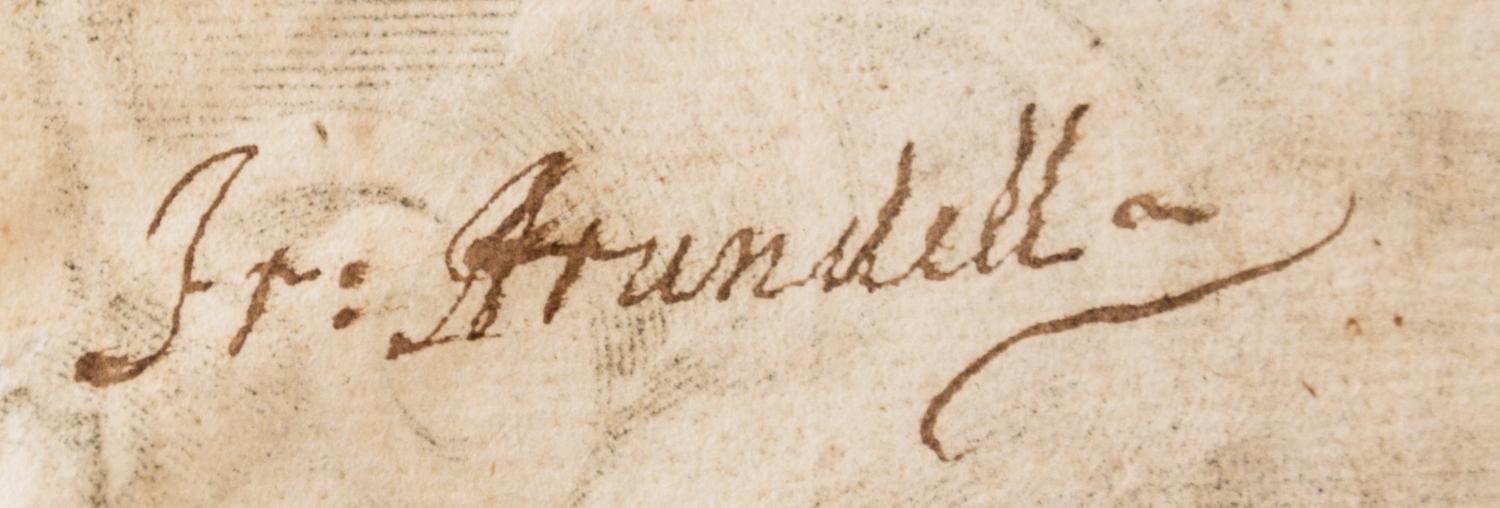 Fr: Arundell ~